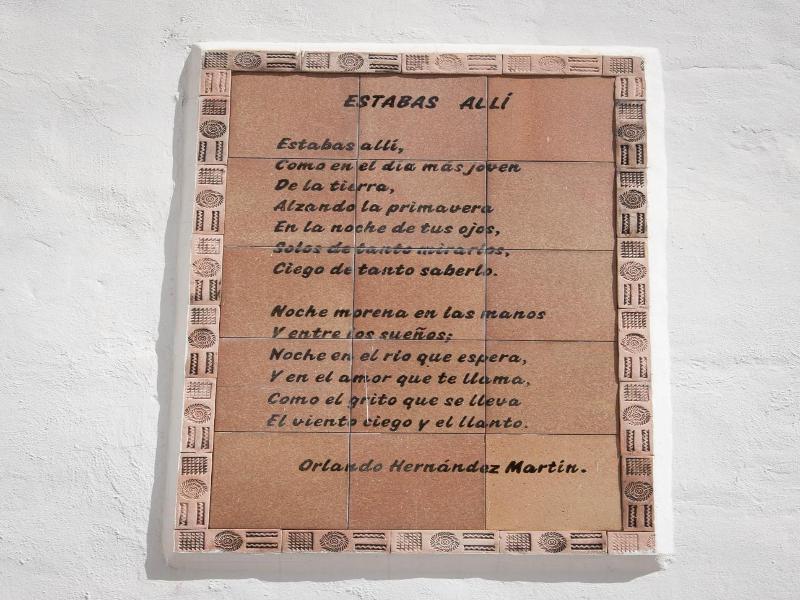 ESTABAS ALLÍ
Estabas allí,
Como en el día más joven
De la tierra,
Alzando la primavera
En la noche de tus ojos,
Solos de tanto mirarlos,
Ciego de tanto saberlo.
Noche morena en las manos
Y entre los sueños;
Noche en el río que espera,
Y en el amor que te llama,
Como el grito que se lleva
El viento ciego y el llanto.
Orlando Hernández Martín.